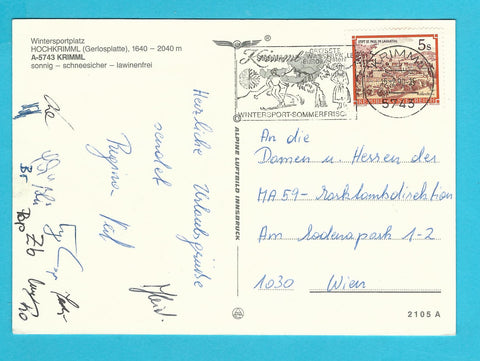 Wintersportplatz
HOCHKRIMML (Gerlosplatte), 1640 – 2040 m
A-5743 KRIMML
sonnig – schneesicher – lawinenfrei
Herzliche Urlaubsgrüße
sendet
Krimml
GRÖSSTE
WASSERFÄLLE
EUROPAS
WINTERSPORT-SOMMERFRISCHE
KRIMML
5743
5 S
STIFT ST. PAUL IM LAVANTTAL
REPUBLIK ÖSTERREICH
ALPINE LUFTBILD INNSBRUCK
An die
Damen u. Herren der
MA 59 - Marktamtsdirektion
Am Modenapark 1-2
1030 Wien
2105 A